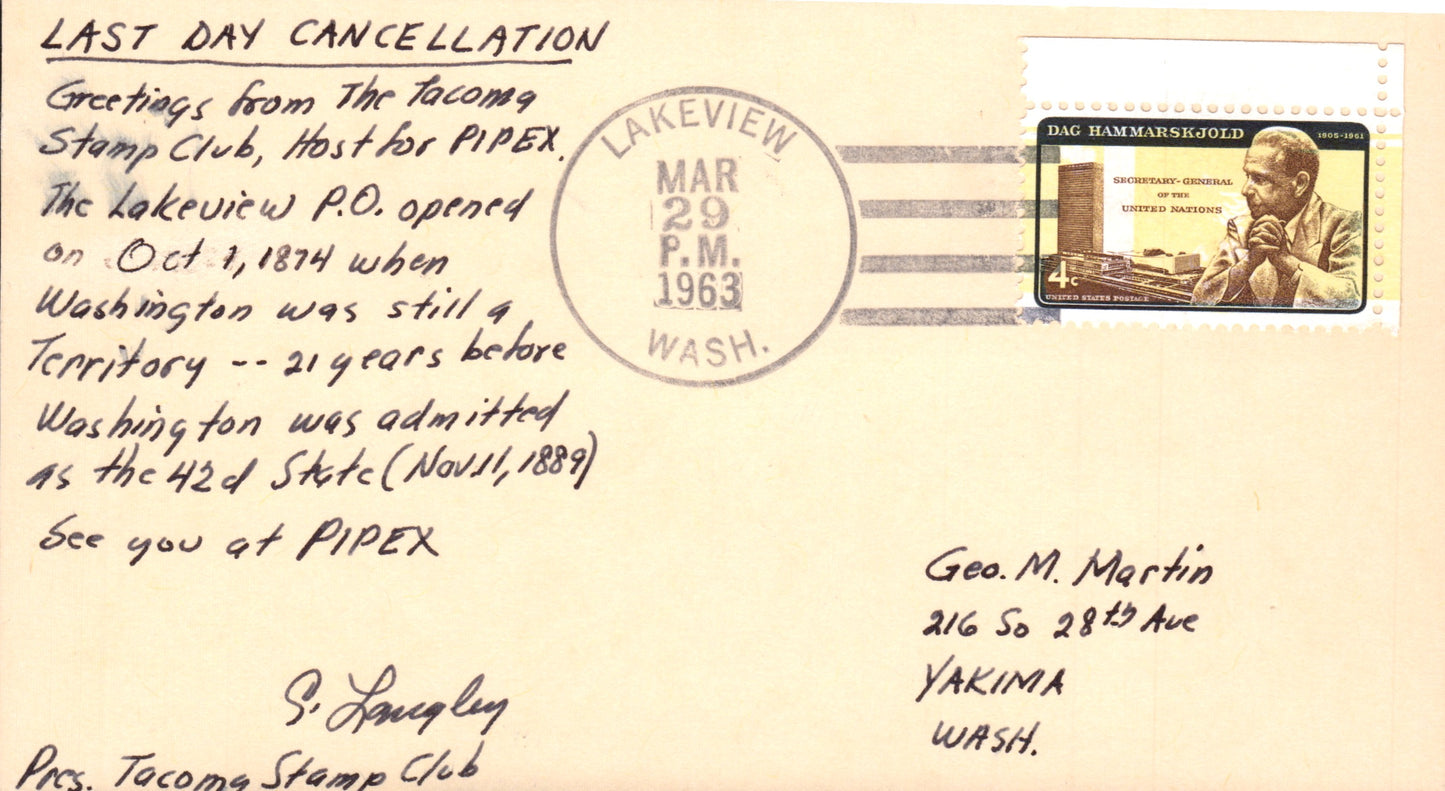 LAST DAY CANCELLATION
Greetings from The Tacoma
Stamp Club, Host for PIPEX.
The Lakeview P.O. opened
on Oct 1, 1874 when
Washington was still a
Territory -- 21 years before
Washington was admitted
as the 42d State (Nov. 11, 1889)
See you at PIPEX
S. Langley
Pres. Tacoma Stamp Club
LAKEVIEW
MAR
29
P.M.
1963
WASH.
DAG HAMMARSKJOLD 1905-1961
SECRETARY-GENERAL
OF THE
UNITED NATIONS
4c
UNITED STATES POSTAGE
Geo. M. Martin
216 So 28th Ave
YAKIMA
WASH.